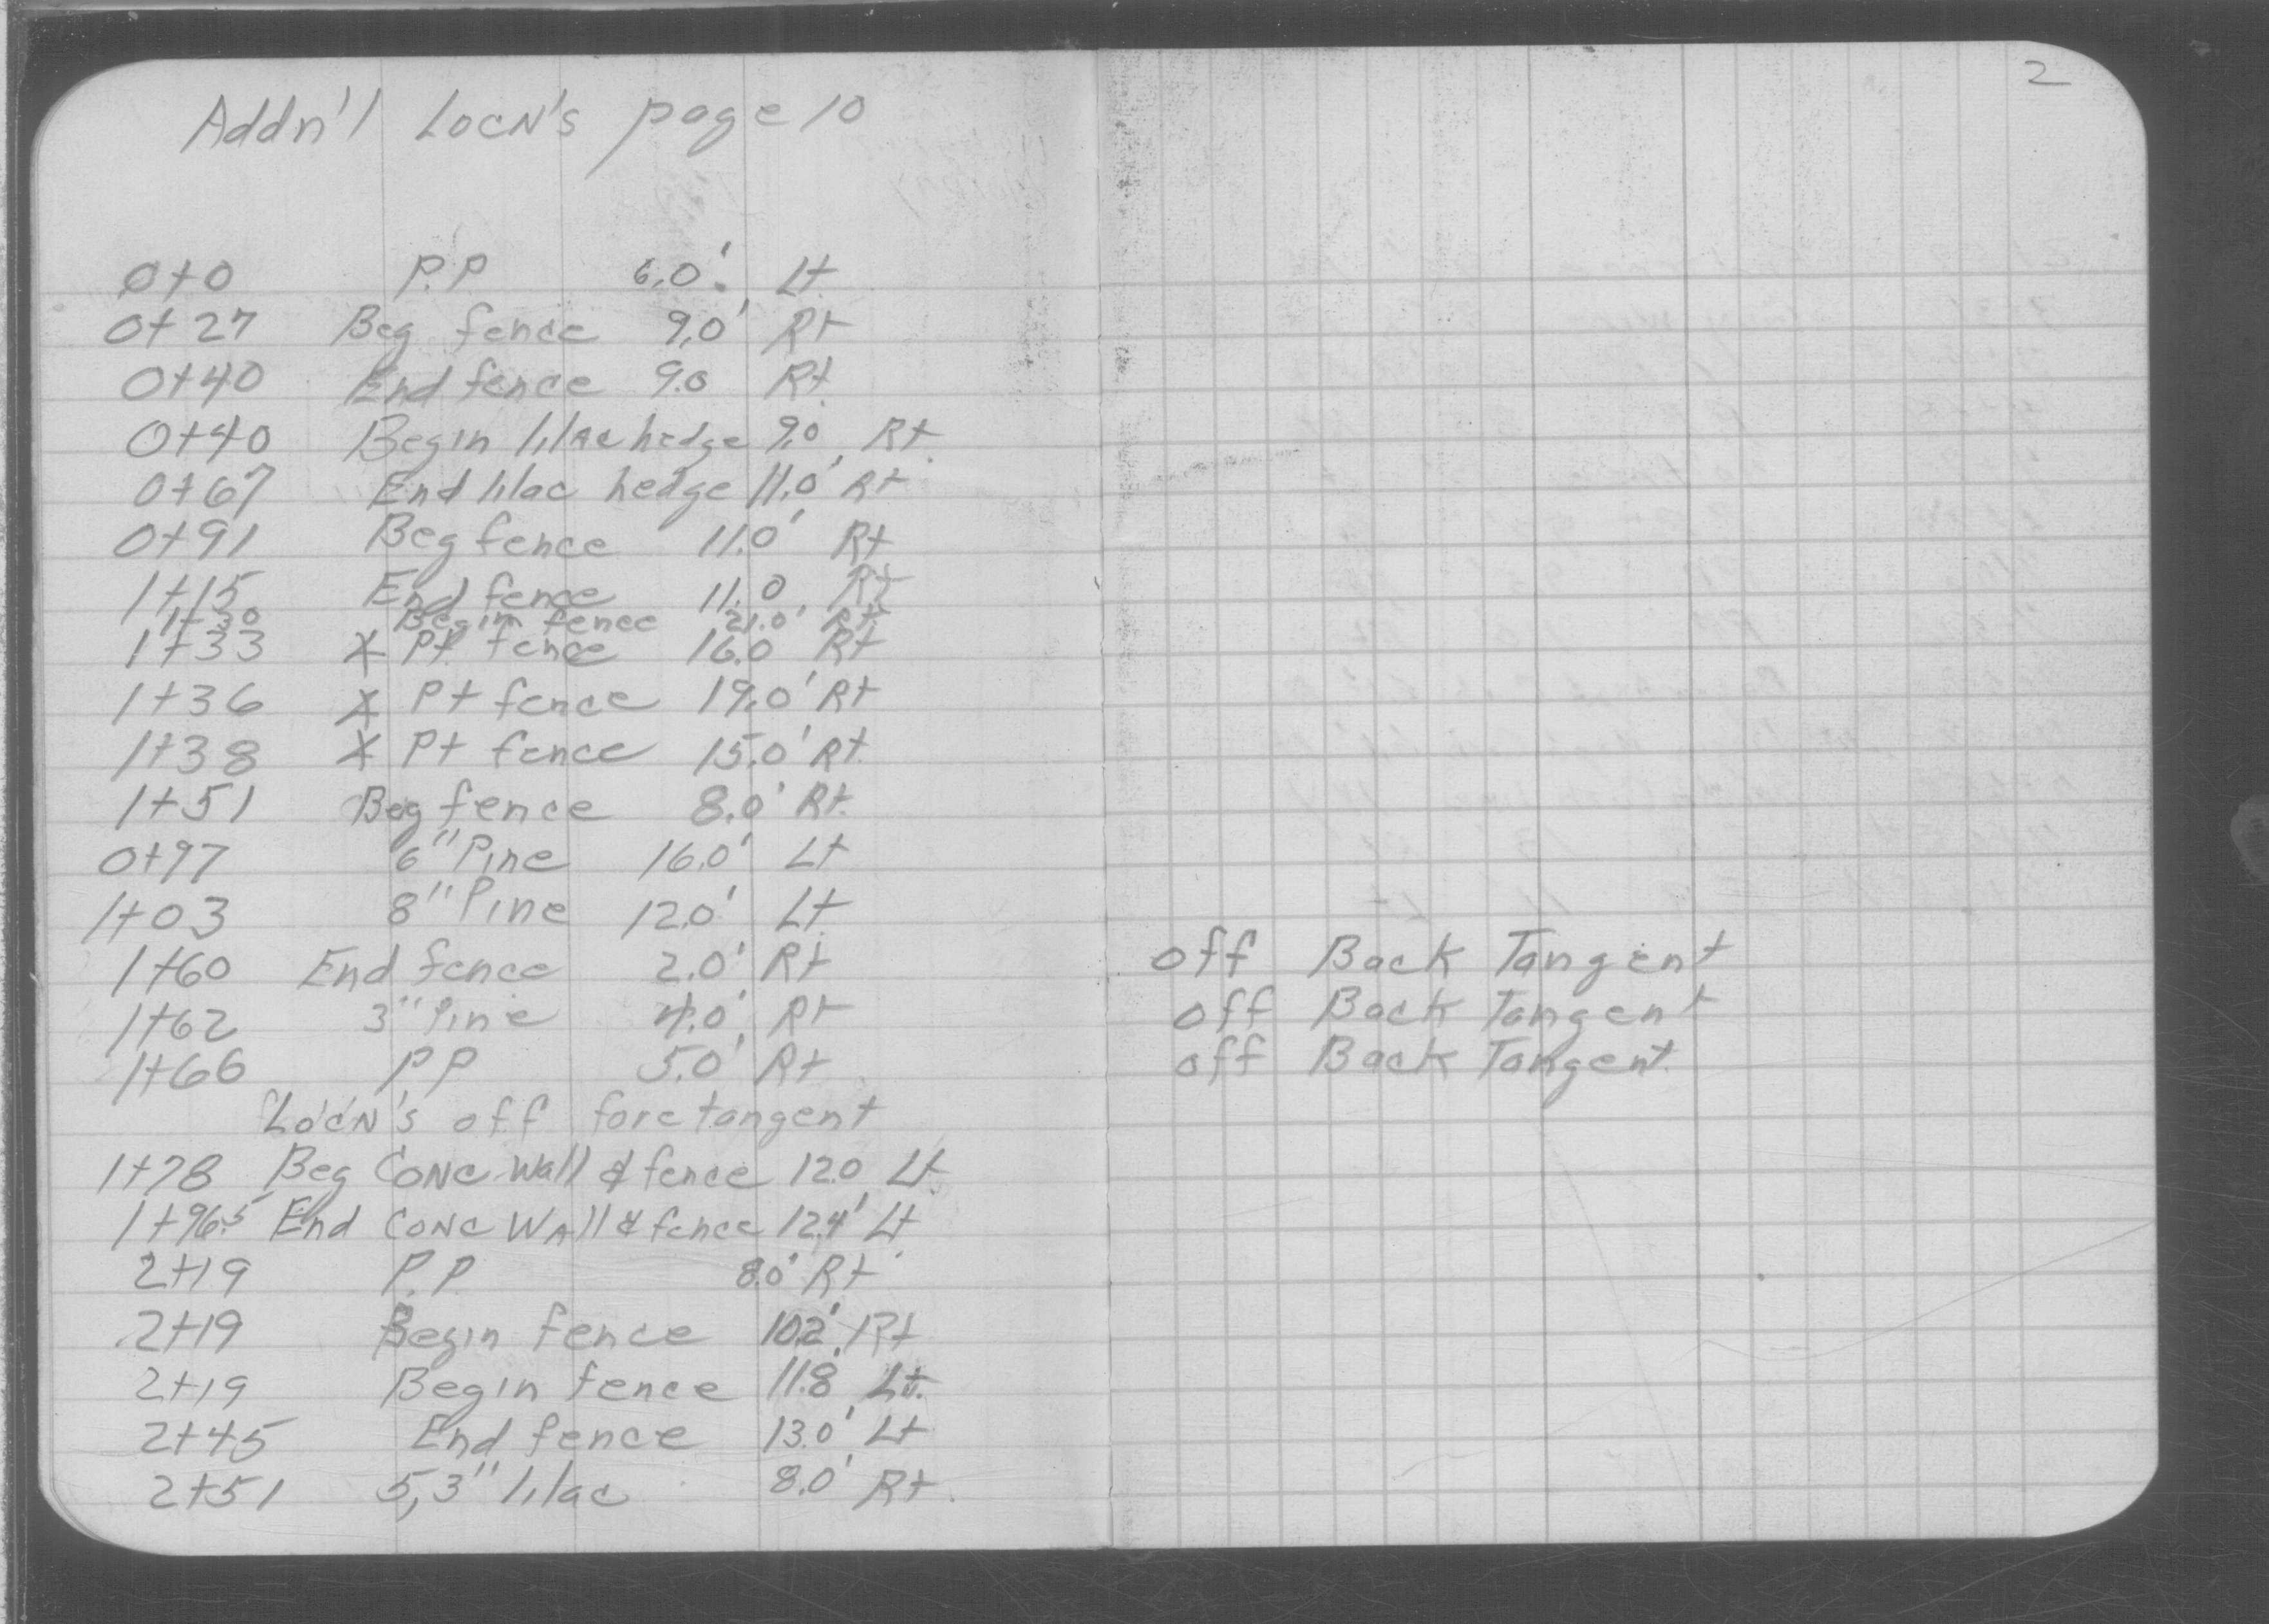 2
Addn'l LocN's page 10
0+0 P.P 6.0' Lt
0+27 Beg fence 9.0' Rt
0+40 End fence 9.0 Rt
0+40 Begin lilac hedge 9.0' Rt.
0+67 End lilac hedge 11.0' Rt
0+91 Beg fence 11.0' Rt
1+15 End fence 11.0 Rt
1+30 Begin fence 21.0' Rt
1+33 X Pt fence 16.0 Rt
1+36 X Pt fence 19.0' Rt
1+38 X Pt fence 15.0' Rt.
1+51 Beg fence 8.0' Rt.
0+97 6" Pine 16.0' Lt
1+03 8" Pine 12.0' Lt
1+60 End fence 2.0' Rt off Back Tangent
1+62 3" Pine 4.0' Rt off Back Tangent
1+66 PP 5.0' Rt off Back Tangent.
LocN's off foretangent
1+78 Beg Conc Wall & fence 12.0 Lt.
1+96.5 End Conc Wall & fence 12.4' Lt
2+19 P.P 8.0' Rt
2+19 Begin fence 10.2' Rt
2+19 Begin fence 11.8' Lt.
2+45 End fence 13.0' Lt
2+51 5,3" lilac 8.0' Rt.